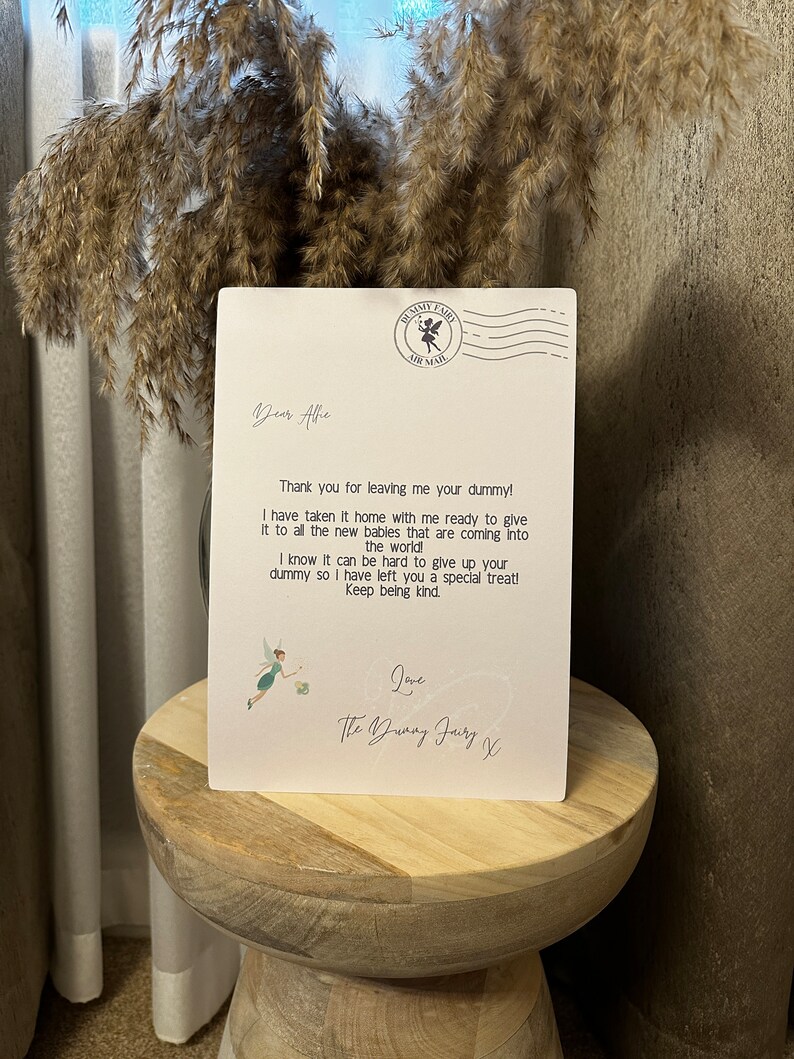 DUMMY FAIRY
AIR MAIL
Dear Alfie
Thank you for leaving me your dummy!
I have taken it home with me ready to give
it to all the new babies that are coming into
the world!
I know it can be hard to give up your
dummy so I have left you a special treat!
Keep being kind.
Love
The Dummy Fairy
X